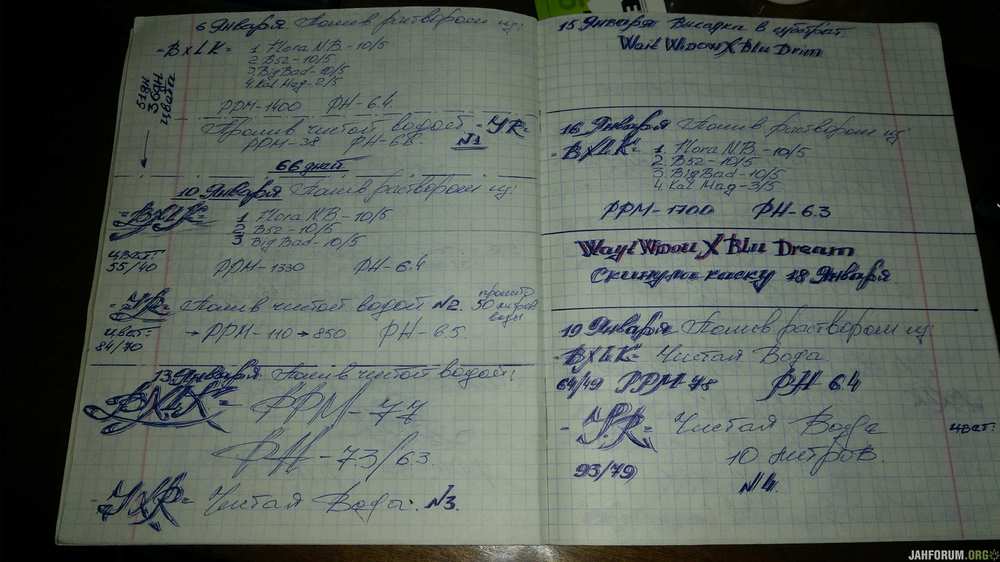 6 Января Полив раствором из:
- BxLK = 1. Flora N.B. - 10/5
2 B52 - 10/5
3 Big Bad - 10/5
4. Kal Mag - 2/5
51 дн
36 дн.
цвета
PPM - 1400 PH - 6.4.
Пролив чистой водой - YR =
PPM - 38 PH - 6.8. №1
66 дней
10 Января Полив раствором из:
= BxLK = 1 Flora N.B. - 10/5
2 B52 - 10/5
3 Big Bad - 10/5
цвет:
55/40
PPM - 1330 PH - 6.4
- YR = Полив чистой водой №2. пролито
50 литров
воды
цвет:
84/70
→ PPM - 110 → 850 PH - 6.5.
13 Января Полив чистой водой:
= BxLK = PPM - 77
PH - 7.3/6.3.
- YxR = Чистая Вода: №3.
15 Января Высадка в субстрат.
Wail Widou X Blu Drim
16 Января Полив раствором из:
- BxLK = 1 Flora N.B. - 10/5
2 B52 - 10/5
3. Big Bad - 10/5
4. Kal Mag - 3/5
PPM - 1700 PH - 6.3
Wayl Widou X Blu Dream
Скинула каску 18 Января
19 Января Полив раствором из:
- BxLK = Чистая Вода
64/49 PPM - 78 PH 6.4
- YR = Чистая Вода цвет:
10 литров.
93/79 №4.
JAHFORUM.ORG